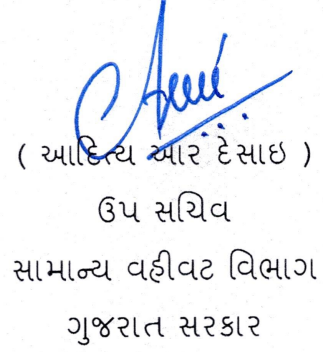 ( આદિત્ય આર દેસાઇ )
ઉપ સચિવ
સામાન્ય વહીવટ વિભાગ
ગુજરાત સરકાર